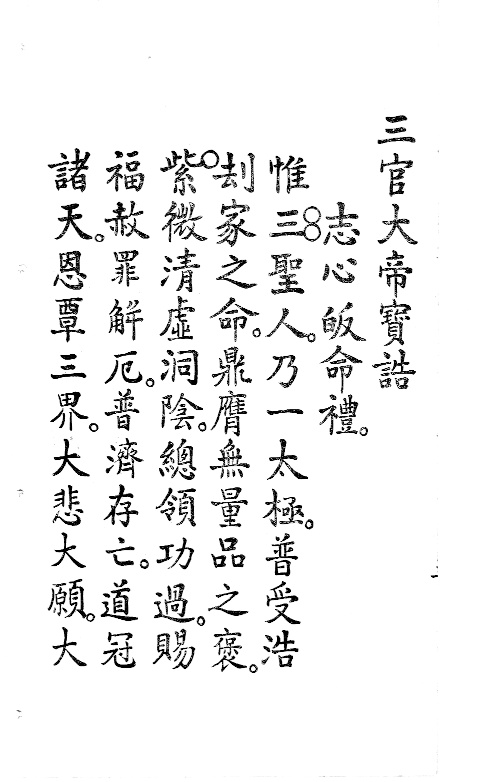 三官大帝寶誥
志心皈命禮。
惟三聖人。乃一太極。普受浩
刦家之命。鼎膺無量品之褒。
紫微清虛洞陰。總領功過。賜
福赦罪解厄。普濟存亡。道冠
諸天。恩覃三界。大悲大願。大